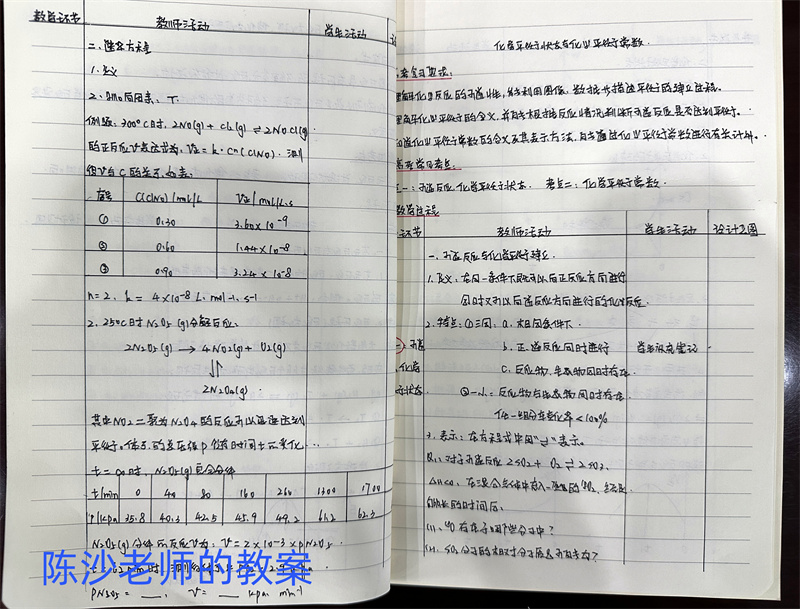 教学环节 教师活动 学生活动
二、速率方程
1.定义
2.影响因素:T.
例题:300℃时,2NO(g)+Cl₂(g)⇌2NOCl(g)
的正反应v表达式为,V正=k·Cⁿ(ClNO).测
得v与C的关系如表:
序号 C(ClNO)/mol/L V正/mol/L·s
① 0.30 3.60×10⁻⁹
② 0.60 1.44×10⁻⁸
③ 0.90 3.24×10⁻⁸
n=2. k= 4×10⁻⁸ L·mol⁻¹·s⁻¹
2.25℃时N₂O₅(g)分解反应:
2N₂O₅(g)→4NO₂(g)+O₂(g)
⇅
2N₂O₄(g).
其中NO₂二聚为N₂O₄的反应可以迅速达到
平衡.体系的总压强p随时间t的变化
t=∞时,N₂O₅(g)完全分解
t/min 0 40 80 160 260 1300 1700
p/kpa 35.8 40.3 42.5 45.9 49.2 61.2 62.3
N₂O₅(g)分解的反应v为:V=2×10⁻³×pN₂O₅.
pN₂O₅=__, V=__ kpa·min⁻¹
陈沙老师的教案
化学平衡状态与化学平衡常数.
考纲要求:
化学反应的可逆性,能利用图像、数据分析描述平衡的建立过程.
理解化学平衡的含义,并能根据反应情况判断可逆反应是否达到平衡.
化学平衡常数的含义及其表示方法,能通过化学平衡常数进行有关计算.
高考学习考点:
一:可逆反应、化学平衡状态. 考点二:化学平衡常数.
教学过程
环节 教师活动 学生活动 设计意图
一、可逆反应与化学平衡建立.
1.定义:在同一条件下既可以向正反应方向进行
同时又可以向逆反应方向进行的化学反应.
2.特点:①三同:a.相同条件下.
一、可逆 b.正、逆反应同时进行 学生记录笔记
化学 c.反应物、生成物同时存在.
平衡状态 ②一小:反应物与生成物同时存在.
任一组分转化率<100%
3.表示:在方程式中用"⇌"表示.
例:对于可逆反应2SO₂+O₂⇌2SO₃.
ΔH<0,在混合气体中充入一定量的¹⁸O₂,经足
够长的时间后.
(1).¹⁸O存在于哪些分子中?
(2).SO₃分子的相对分子质量可能为?